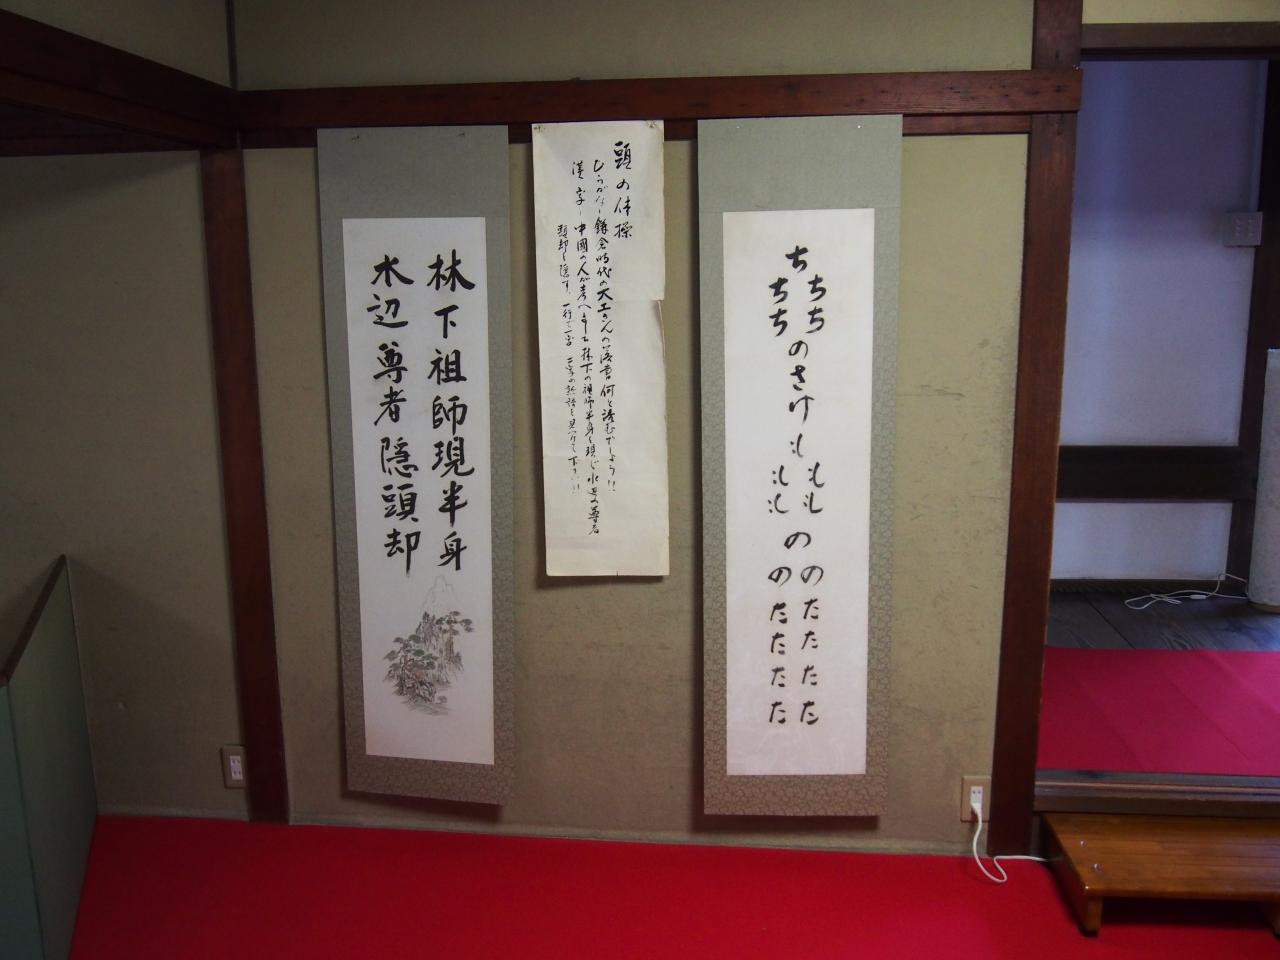 ち
ちち
ちち
のさけ
も
もも
もも
の
のの
たた
たた
たた
たた
頭の体操
ひらがなー鎌倉時代の大工さんの落書 何と読むでしょう!!
漢字ー中国の人が考へました 林下の祖師半身を現じ 水辺の尊者
頭却を隠す、一行で一字 二字の熟語を見つけて下さい!!
林下祖師現半身
水辺尊者隠頭却